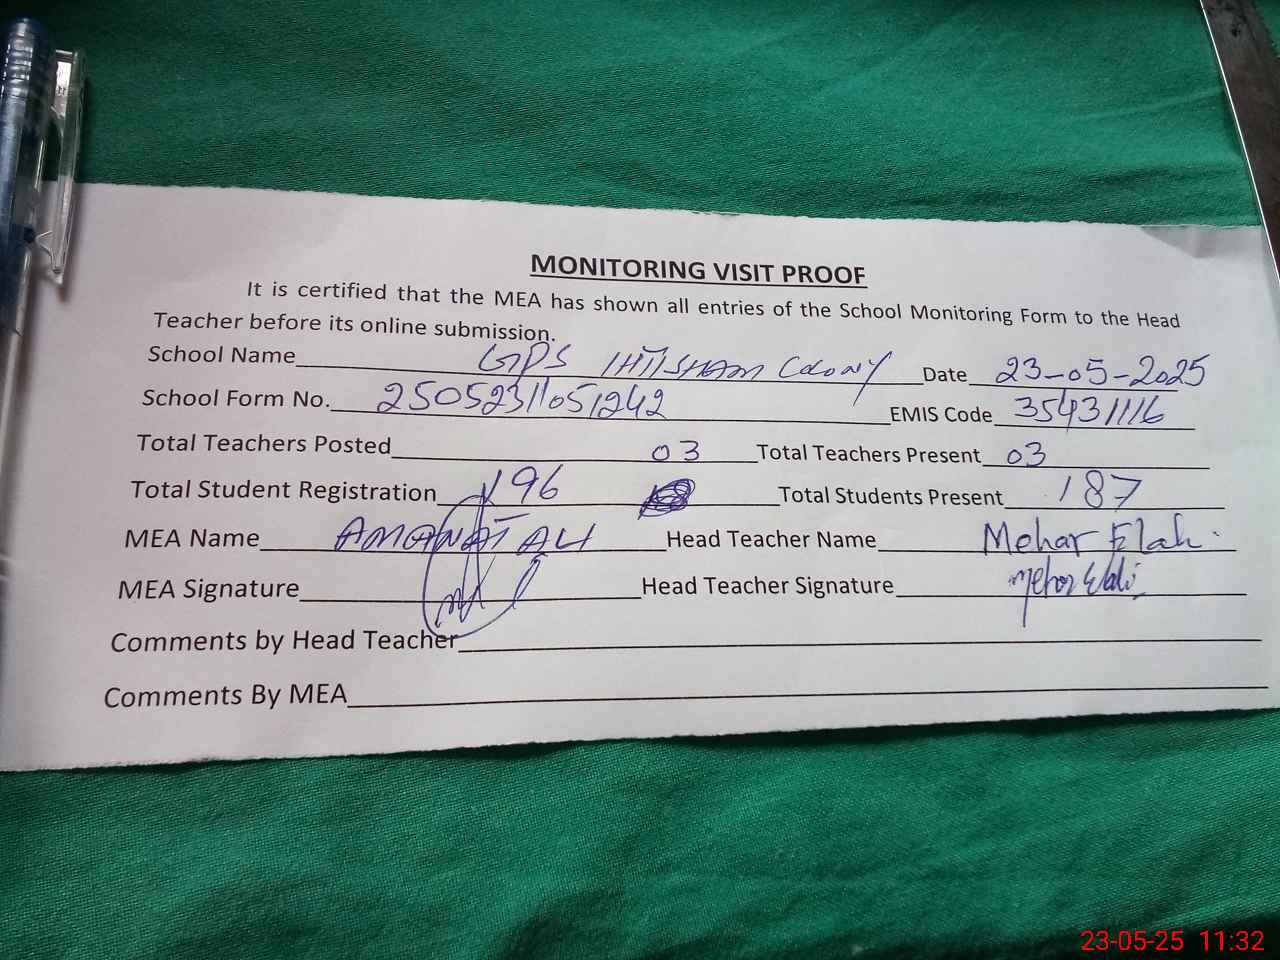 MONITORING VISIT PROOF
It is certified that the MEA has shown all entries of the School Monitoring Form to the Head
Teacher before its online submission.
School Name GPS IHTISHAM Colony Date 23-05-2025
School Form No. 25052311051242 EMIS Code 35431116
Total Teachers Posted 03 Total Teachers Present 03
Total Student Registration 196 Total Students Present 187
MEA Name AMANAT ALI Head Teacher Name Mehar Elahi
MEA Signature Head Teacher Signature Mehar Elahi
Comments by Head Teacher
Comments By MEA
23-05-25 11:32